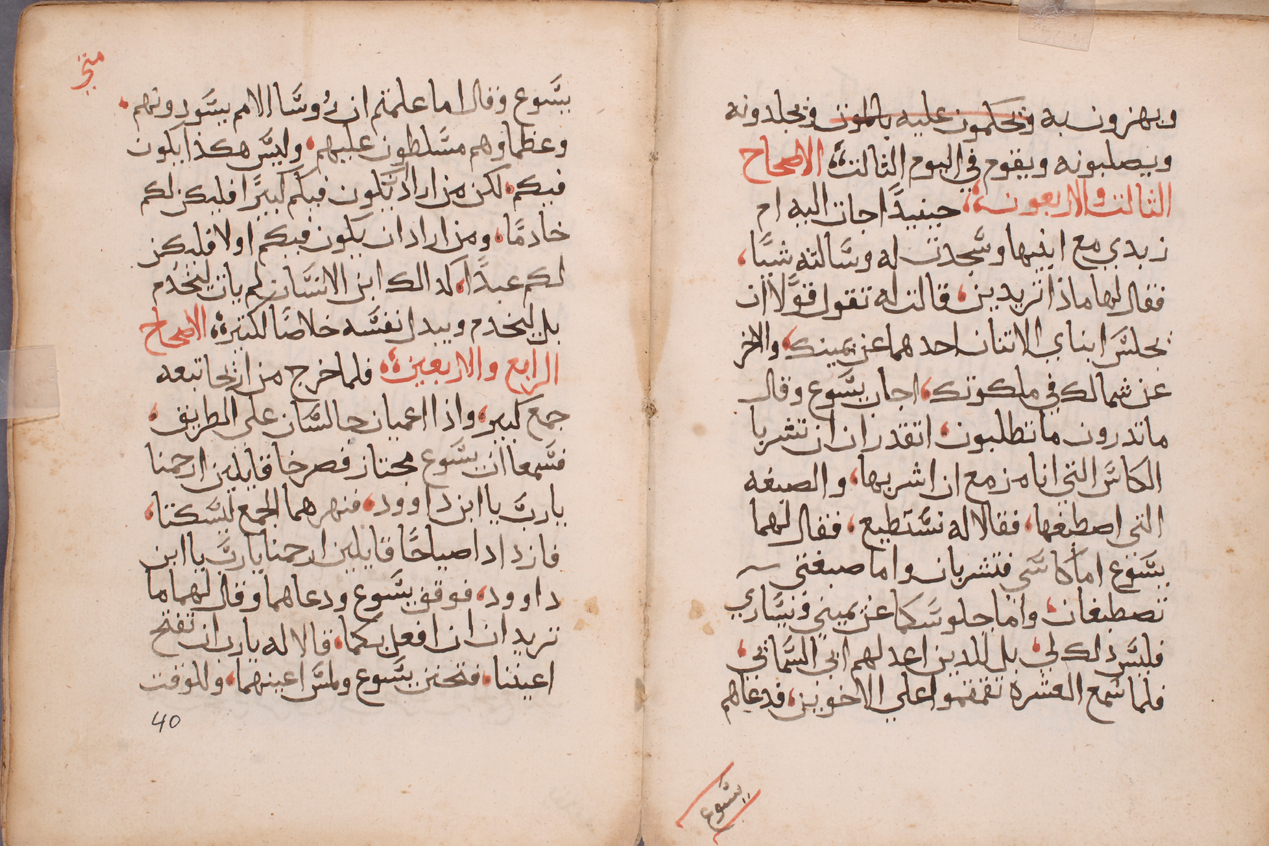 ويهزون به ويحكمون عليه بالموت ويجلدونه
ويصلبونه ويقوم في اليوم الثالث؛ الاصحاح
الثالث والاربعون؛ حينيذًا جات اليه ام
زبدي مع ابنيها وسَجدت له وسَالته شيًا،
فقال لها ماذا تريدين، قالت له تقول قولًا ان
يجلسَ ابناي الاتنان احدهما عن يمينك، والاخر
عن شمالك في ملكوتك، اجاب يسَوع وقال
ماتدرون ما تطلبون، اتقدران ان تشربا
الكاسَ التي انا مزمع ان اشربها، والصبغه
التي اصطبغها، فقالا له نسَتطيع، فقال لهما
يسَوع اما كاسَي فتشربان واما صبغتي
تصطبغان، واما جلوسَكما عن يميني ويسَاري
فليسَ ذلك لي، بل للدين اعد لهم ابي السَماي،
فلما سَمع العشره تقمقموا على الاخوين، فدعاهم
يسَوع
متي
يسَوع وقال اما علمتم ان روسَا الامم يسَودونهم،
وعظماوهم مسَلطون عليهم، وليسَ هكذا يكون
فيكم، لكن من اراد يكون فيكم كبيرًا فليكن لكم
خادمًا، ومن اراد ان يكون فيكم اولا فليكن
لكم عبدًا، كدالك ابن الانسَان لم يات ليُخدم
بل ليخدم ويبدل نفسَه خلاصًا لكتيره؛ الاصحاح
الرابع والاربعين؛ فلما خرج من اريحا تبعه
جمع كبير، واذا اعميان جالسَان على الطريق،
فسَمعا ان يسَوع مجتاز فصرخا قايلين ارحمنا
ياربَ يا ابن داوود، فنهرهما الجمع ليسَكتا،
فازدادا صياحًا قايلين ارحمنا ياربَ يا ابن
داوود، فوقف يسَوع ودعاهما وقال لهما ما
تريدان ان افعل بكما، قالا له يارب ان تفتح
اعيننا، فتحنن يسَوع ولمسَ اعينهما، وللوقت
40